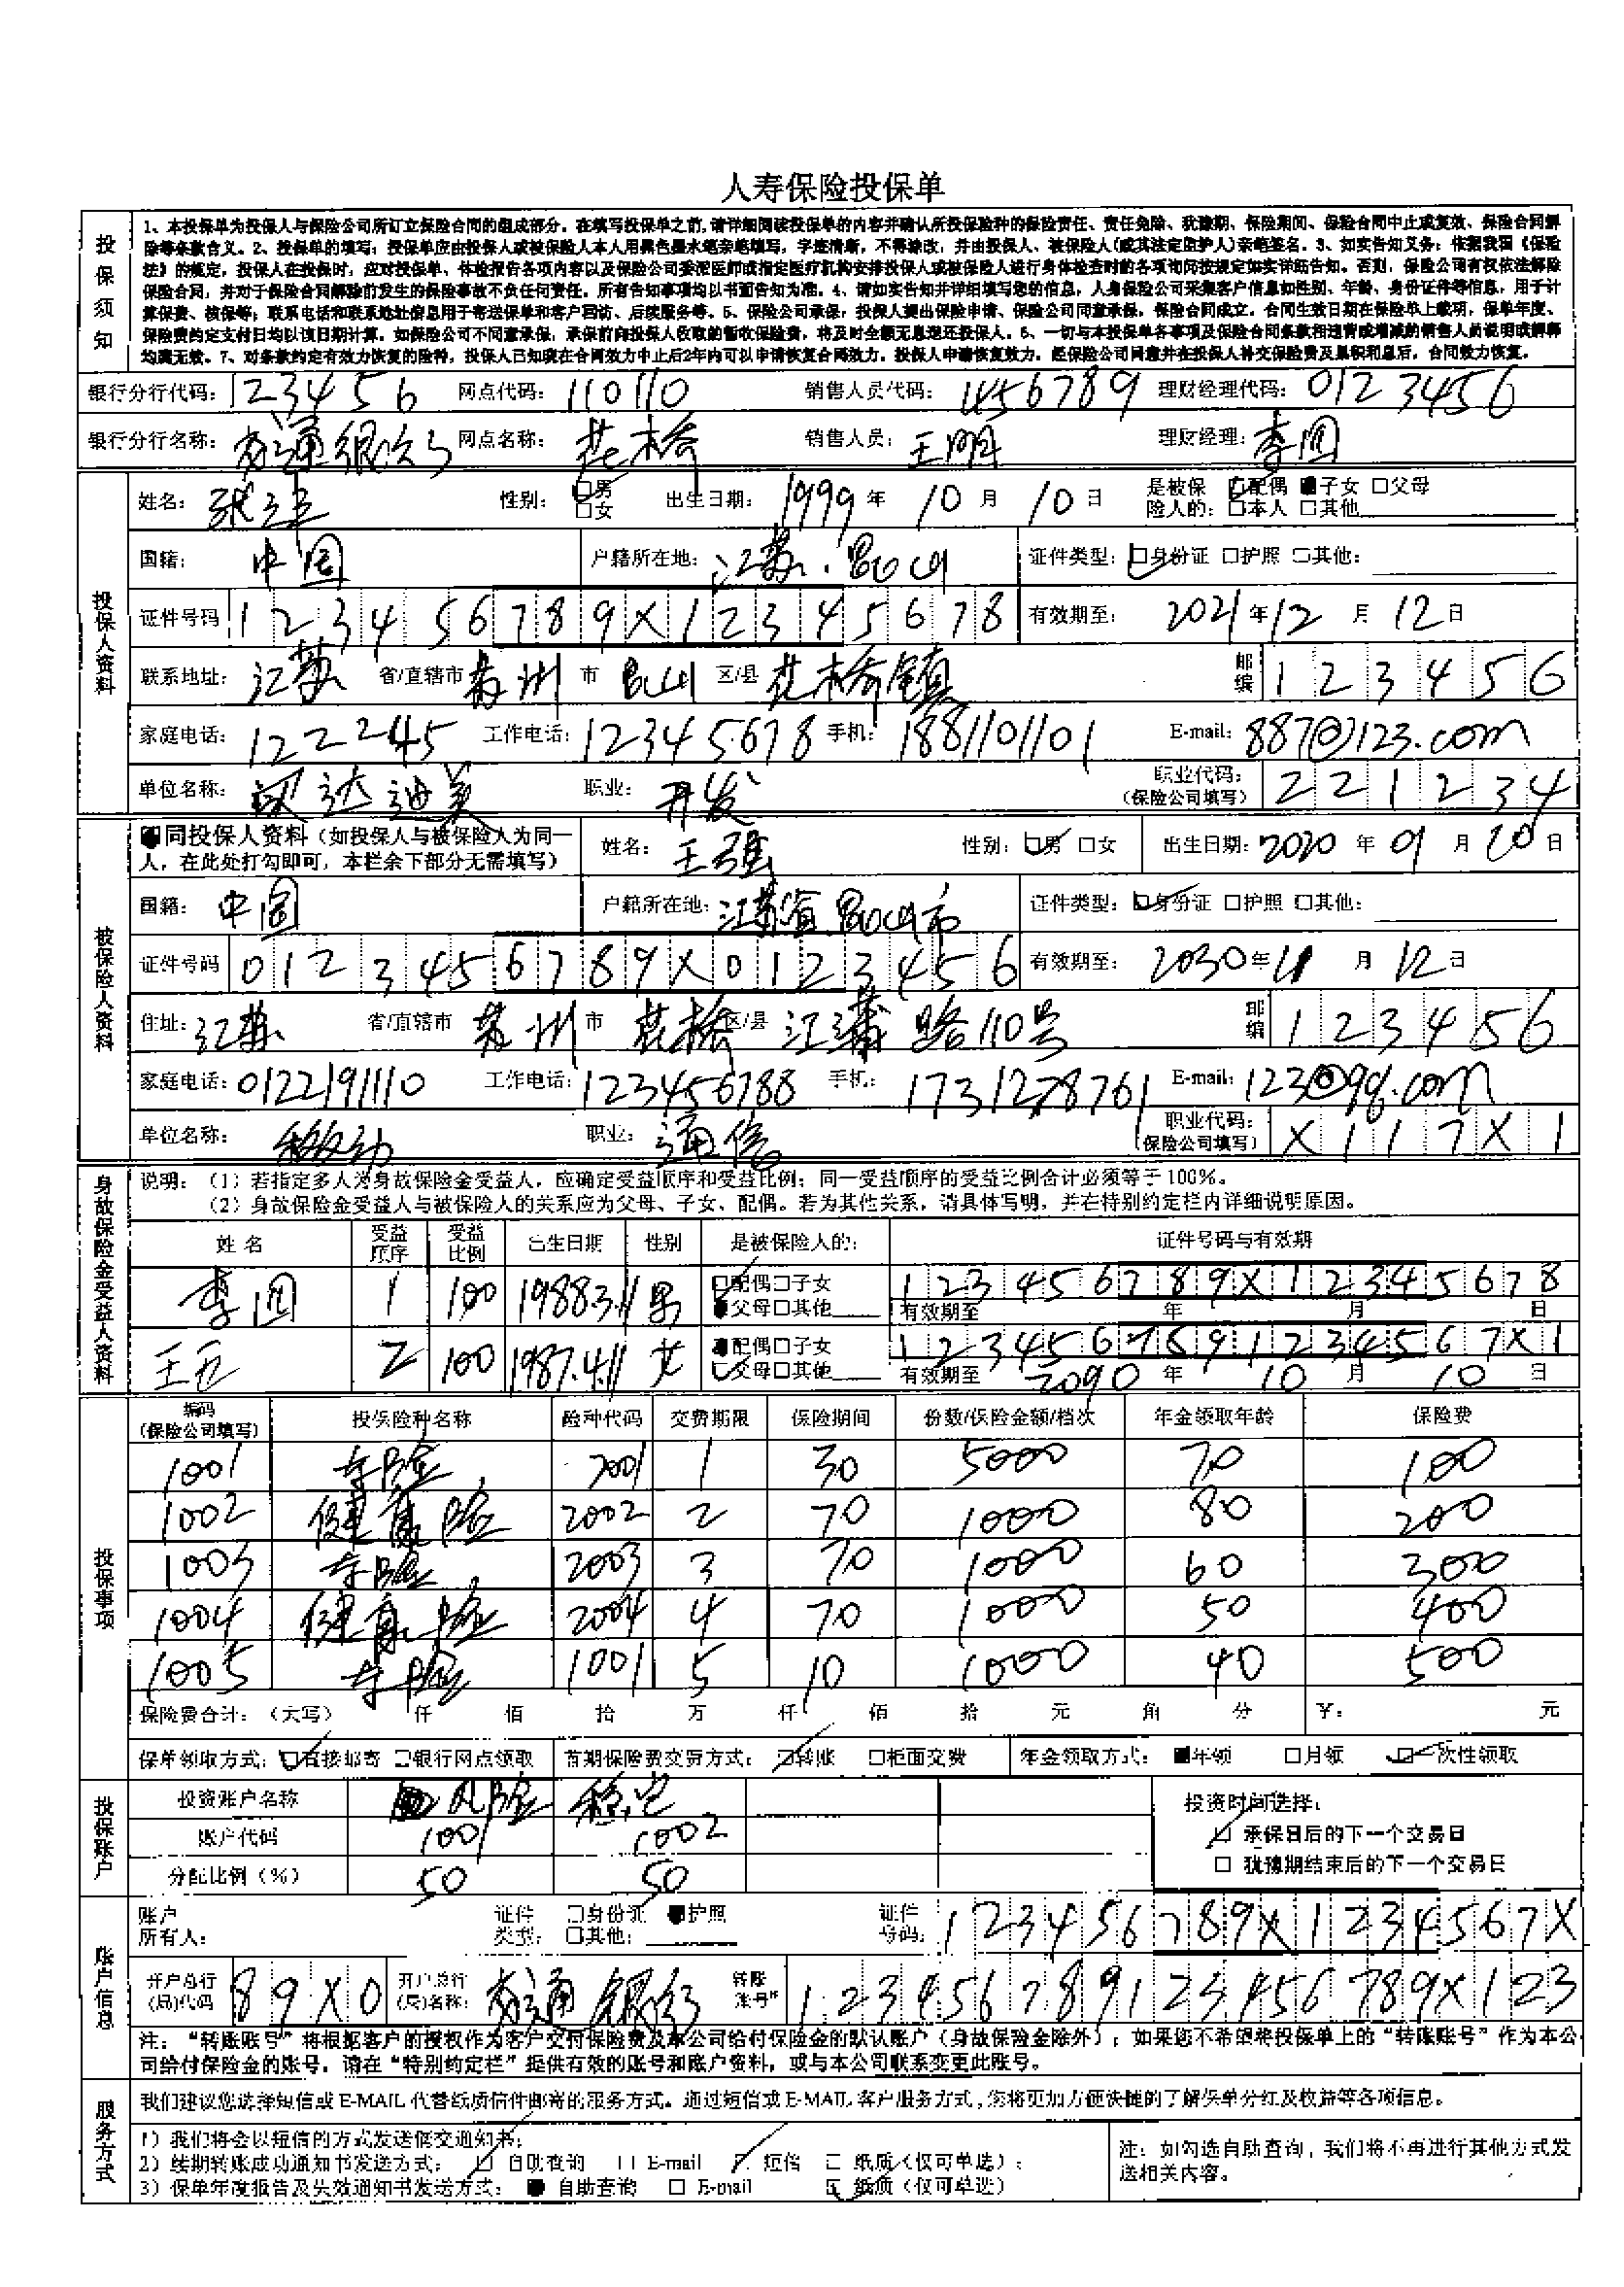 人寿保险投保单
投保须知
1、本投保单为投保人与保险公司所订立保险合同的组成部分。在填写投保单之前,请详细阅读投保单的内容并确认所投保险种的保险责任、责任免除、犹豫期、保险期间、保险合同中止或复效、保险合同解
除等条款含义。2、投保单的填写：投保单应由投保人或被保险人本人用黑色墨水笔亲笔填写，字迹清晰，不得涂改，并由投保人、被保险人(或其法定监护人)亲笔签名。3、如实告知义务：依据我国《保险
法》的规定，投保人在投保时，应对投保单、体检报告各项内容以及保险公司委派医师或指定医疗机构安排投保人或被保险人进行身体检查时的各项询问按规定如实详细告知。否则，保险公司有权依法解除
保险合同，并对于保险合同解除前发生的保险事故不负任何责任。所有告知事项均以书面告知为准。4、请如实告知并详细填写您的信息，人身保险公司采集客户信息如性别、年龄、身份证件等信息，用于计
算保费、核保等；联系电话和联系地址信息用于寄送保单和客户回访、后续服务等。5、保险公司承保：投保人提出保险申请、保险公司同意承保，保险合同成立。合同生效日期在保险单上载明，保单年度、
保险费约定支付日均以该日期计算。如保险公司不同意承保，承保前向投保人收取的暂收保险费，将及时全额无息退还投保人。6、一切与本投保单各事项及保险合同条款相违背或增减的销售人员说明或解释
均属无效。7、对条款约定有效力恢复的险种，投保人已知晓在合同效力中止后2年内可以申请恢复合同效力。投保人申请恢复效力，经保险公司同意并在投保人补交保险费及累积利息后，合同效力恢复。
银行分行代码：123456 网点代码：110110 销售人员代码：1456789 理财经理代码：0123456
银行分行名称：交通银行 网点名称：花桥 销售人员：王明 理财经理：李四
投保人资料
姓名： 性别：□男 出生日期：1999年10月10日 是被保□配偶 ■子女 □父母
□女 险人的：□本人 □其他
国籍：中国 户籍所在地：江苏.昆山 证件类型：□身份证 □护照 □其他：
证件号码 123456789X12345678 有效期至：2021年12月12日
联系地址：江苏 省/直辖市 苏州 市 昆山 区/县 花桥镇 邮编 123456
家庭电话：122245 工作电话：12345678 手机：1881101101 E-mail：887@123.com
单位名称：凯达迪美 职业：开发 职业代码：（保险公司填写）221234
被保险人资料
■同投保人资料（如投保人与被保险人为同一 姓名：王强 性别：□男 □女 出生日期：2020年01月20日
人，在此处打勾即可，本栏余下部分无需填写）
国籍：中国 户籍所在地：江苏省昆山市 证件类型：□身份证 □护照 □其他：
证件号码 0123456789X0123456 有效期至：2030年11月12日
住址：江苏 省/直辖市 苏州 市 花桥 区/县 江浦路110号 邮编 123456
家庭电话：0122191110 工作电话：123456788 手机：1731278761 E-mail：123@qq.com
单位名称：移动 职业：通信 职业代码：（保险公司填写）X117X1
身故保险金受益人资料
说明：（1）若指定多人为身故保险金受益人，应确定受益顺序和受益比例；同一受益顺序的受益比例合计必须等于100%。
（2）身故保险金受益人与被保险人的关系应为父母、子女、配偶。若为其他关系，请具体写明，并在特别约定栏内详细说明原因。
姓 名 受益顺序 受益比例 出生日期 性别 是被保险人的： 证件号码与有效期
李四 1 100 1988.3.11 男 □配偶□子女 123456789X12345678
■父母□其他 有效期至 年 月 日
王五 2 100 1987.4.11 女 ■配偶□子女 1234567891234567X1
□父母□其他 有效期至 2090年10月10日
投保事项
编码（保险公司填写） 投保险种名称 险种代码 交费期限 保险期间 份数/保险金额/档次 年金领取年龄 保险费
1001 寿险 2001 1 30 5000 70 100
1002 健康险 2002 2 70 1000 80 200
1003 寿险 2003 3 70 1000 60 300
1004 健康险 2004 4 70 1000 50 400
1005 寿险 1001 5 10 1000 40 500
保险费合计：（大写） 仟 佰 拾 万 仟 佰 拾 元 角 分 ￥： 元
保单领取方式：□直接邮寄 □银行网点领取 首期保险费交费方式：□转账 □柜面交费 年金领取方式：■年领 □月领 □一次性领取
投保账户
投资账户名称 风险 稳定 投资时间选择：
账户代码 1001 1002 □ 承保日后的下一个交易日
分配比例（%） 50 50 □ 犹豫期结束后的下一个交易日
账户信息
账户所有人： 证件类型：□身份证 ■护照 □其他： 证件号码：123456789X1234567X
开户总行(局)代码 89X0 开户总行(局)名称：交通银行 转账账号* 123456789123456789X123
注：“转账账号”将根据客户的授权作为客户交付保险费及本公司给付保险金的默认账户（身故保险金除外）；如果您不希望将投保单上的“转账账号”作为本公
司给付保险金的账号，请在“特别约定栏”提供有效的账号和账户资料，或与本公司联系变更此账号。
服务方式
我们建议您选择短信或E-MAIL代替纸质信件邮寄的服务方式。通过短信或E-MAIL客户服务方式，您将更加方便快捷的了解保单分红及权益等各项信息。
1）我们将会以短信的方式发送催交通知书；
2）续期转账成功通知书发送方式：□ 自助查询 □ E-mail □ 短信 □ 纸质（仅可单选）；
3）保单年度报告及失效通知书发送方式：■ 自助查询 □ E-mail □ 纸质（仅可单选）
注：如勾选自助查询，我们将不再进行其他方式发
送相关内容。